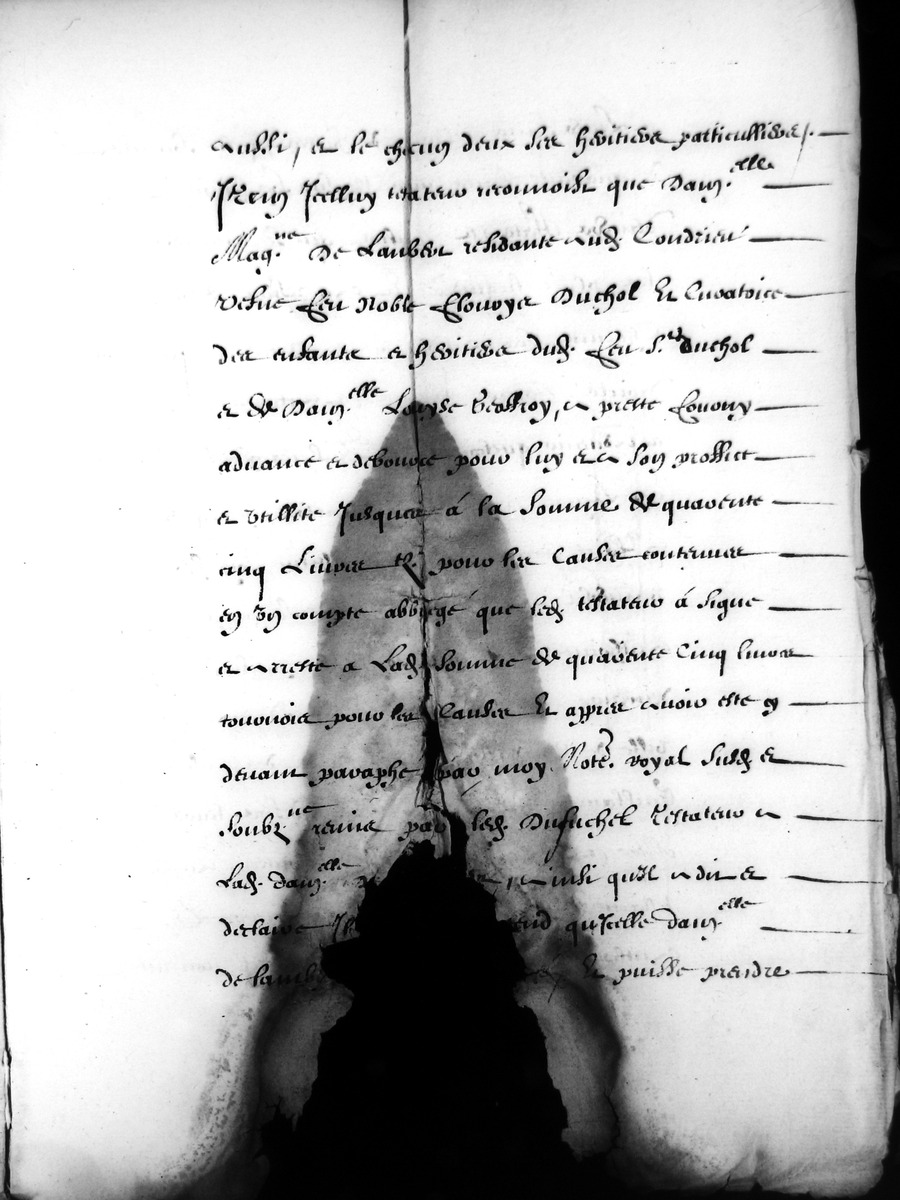 aussi, et le chacun deux ses heritiers particulliers /.
Item Icelluy testateur reconnoist que Dam.elle
Mag.ne De Lauber residante aud. Condrieu
vefve feu Noble Elouys Duchol et Curatrice
des enfants et heritiers dud. feu S.r Duchol
et de Dam.elle Louyse Geoffroy, a preste fourny
advance et debource pour luy et a son proffict
et utillite Jusques á la Somme de quarente
cinq Livres tz. pour les Causes contenues
en un compte abbregé que led. testateur á signe
et arreste a Lad. somme de quarente Cinq livres
tournois pour les Causes Et appres avoir este
devant paraphe par moy Note. royal susd. et
soubz.ne remis par led. Dufuchel Testateur a
Lad. dam.elle de ainsi qu'il a dit et
declaire qu'Icelle dam.elle
de Et puisse prendre